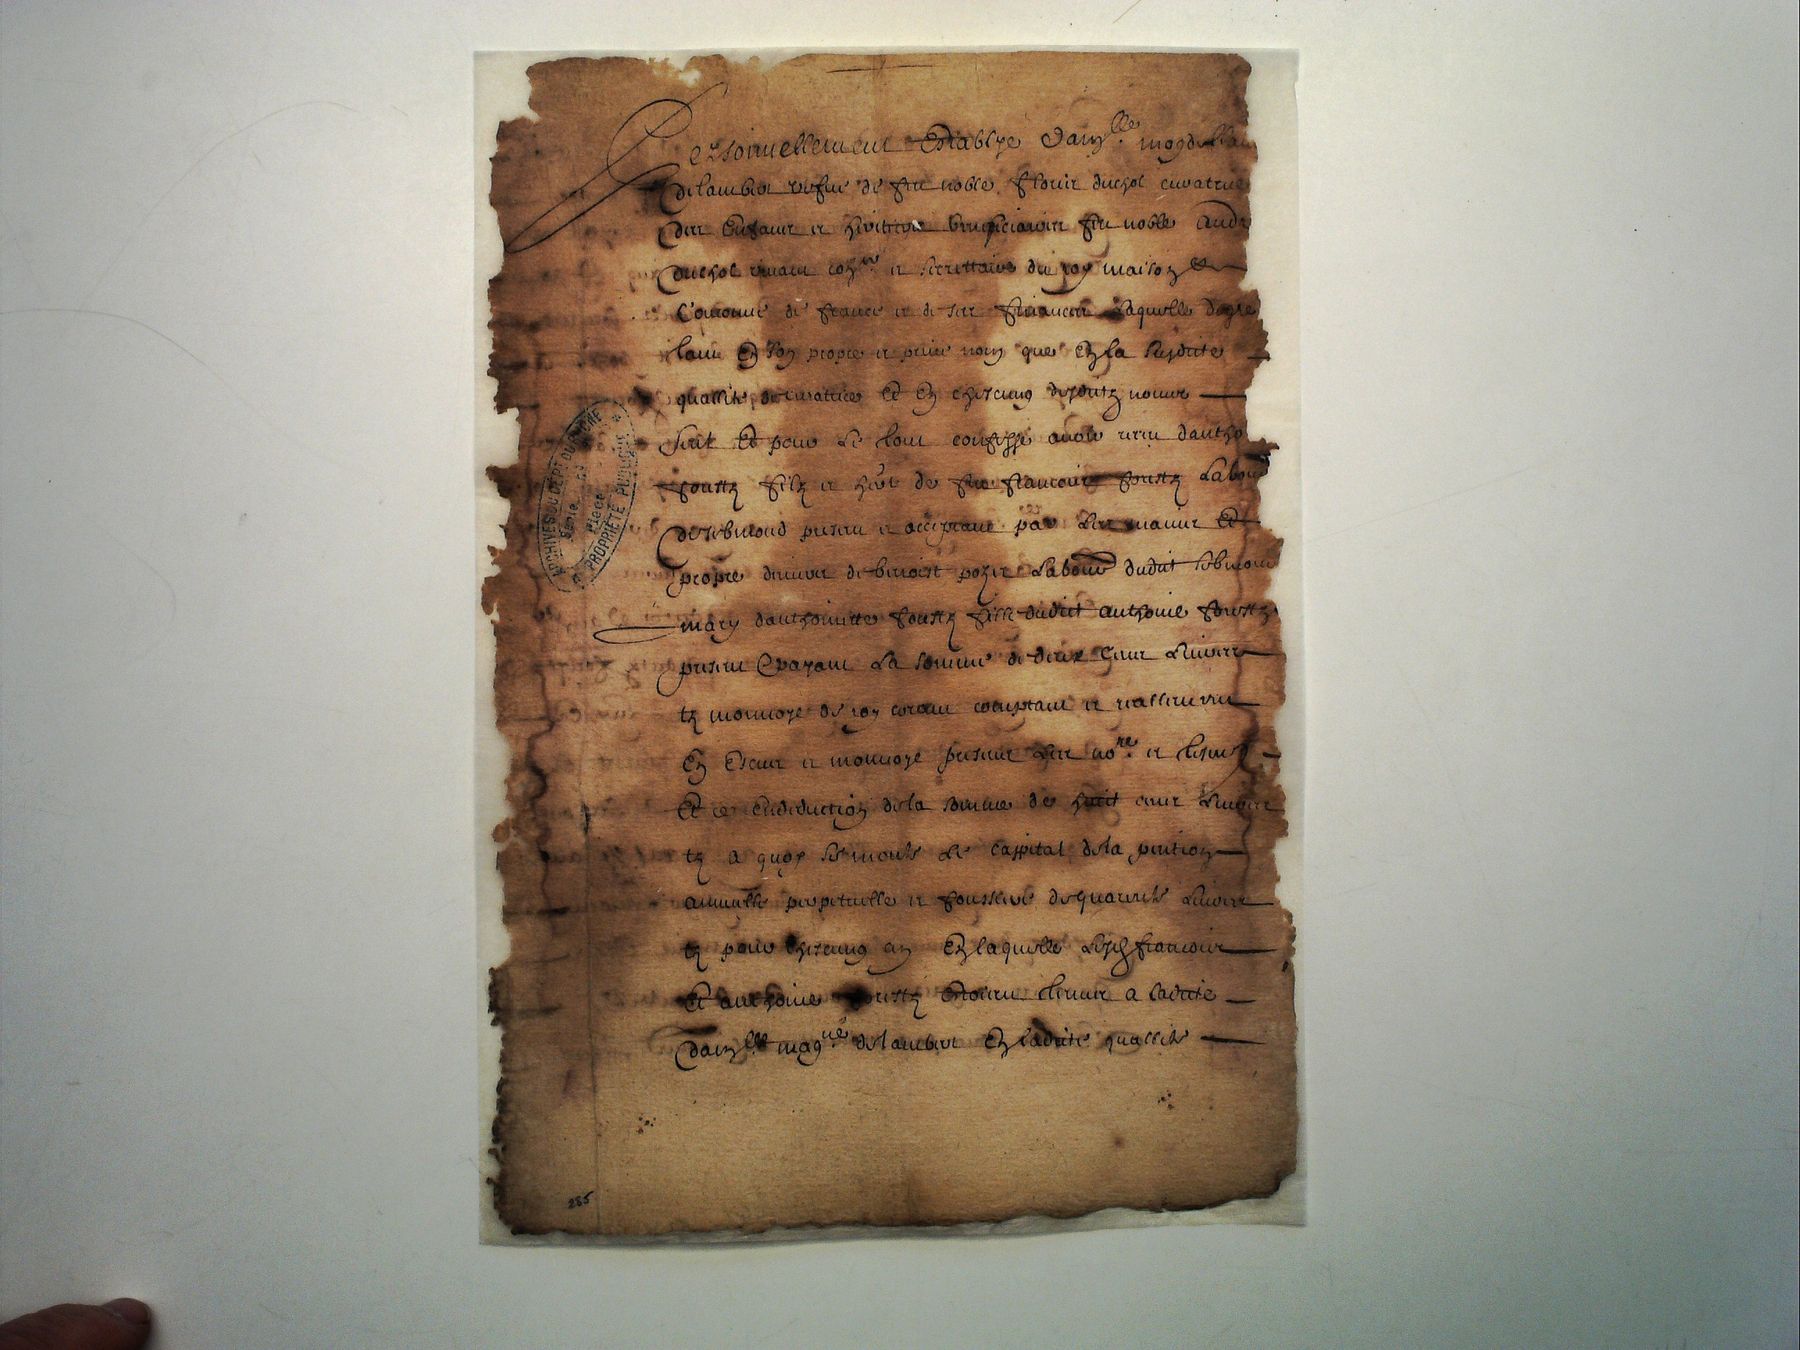 Personnellement Establye dam.lle magdellai
delambert vefue de feu noble floris duchol curatrice
des Enfans et heritiers beneficiaires feu noble Andr
duchol viuant con.er et secrettaire du roy maison &
Couronne de france et de ses finances Laquelle de gre
tant En son propre et priue nom que En la susdite
qualité de curatrice Et En chescung desdits noms
seul Et pour Le tout confesse auoir receu dantho
foustz filz et her de feu francois foustz Labour
de present et acceptant par Les mains Et
propre deniers de benoist pozet Labour dudit
mary danthoinette foustz fille dudit anthoine foustz
present Epayant La somme de deux Cent Liures
tz monnoye de roy comptant et reallement
En Escus et monnoye present Les no.re et tesmoingz
Et ce En deduction de la somme de huit cent Liures
tz a quoy se monte Le cappital de la pention
annuelle perpetuelle et fonsiere de quarente Liures
tz pour chescung an En laquelle Lesd francois
Et anthoine foustz Estoient tenus a Ladite
dam.lle mag.ne de lambert En ladite qualité
ARCHIVES DU DEPT DU RHONE
Série
Pièce
PROPRIÉTÉ PUBLIQUE
285